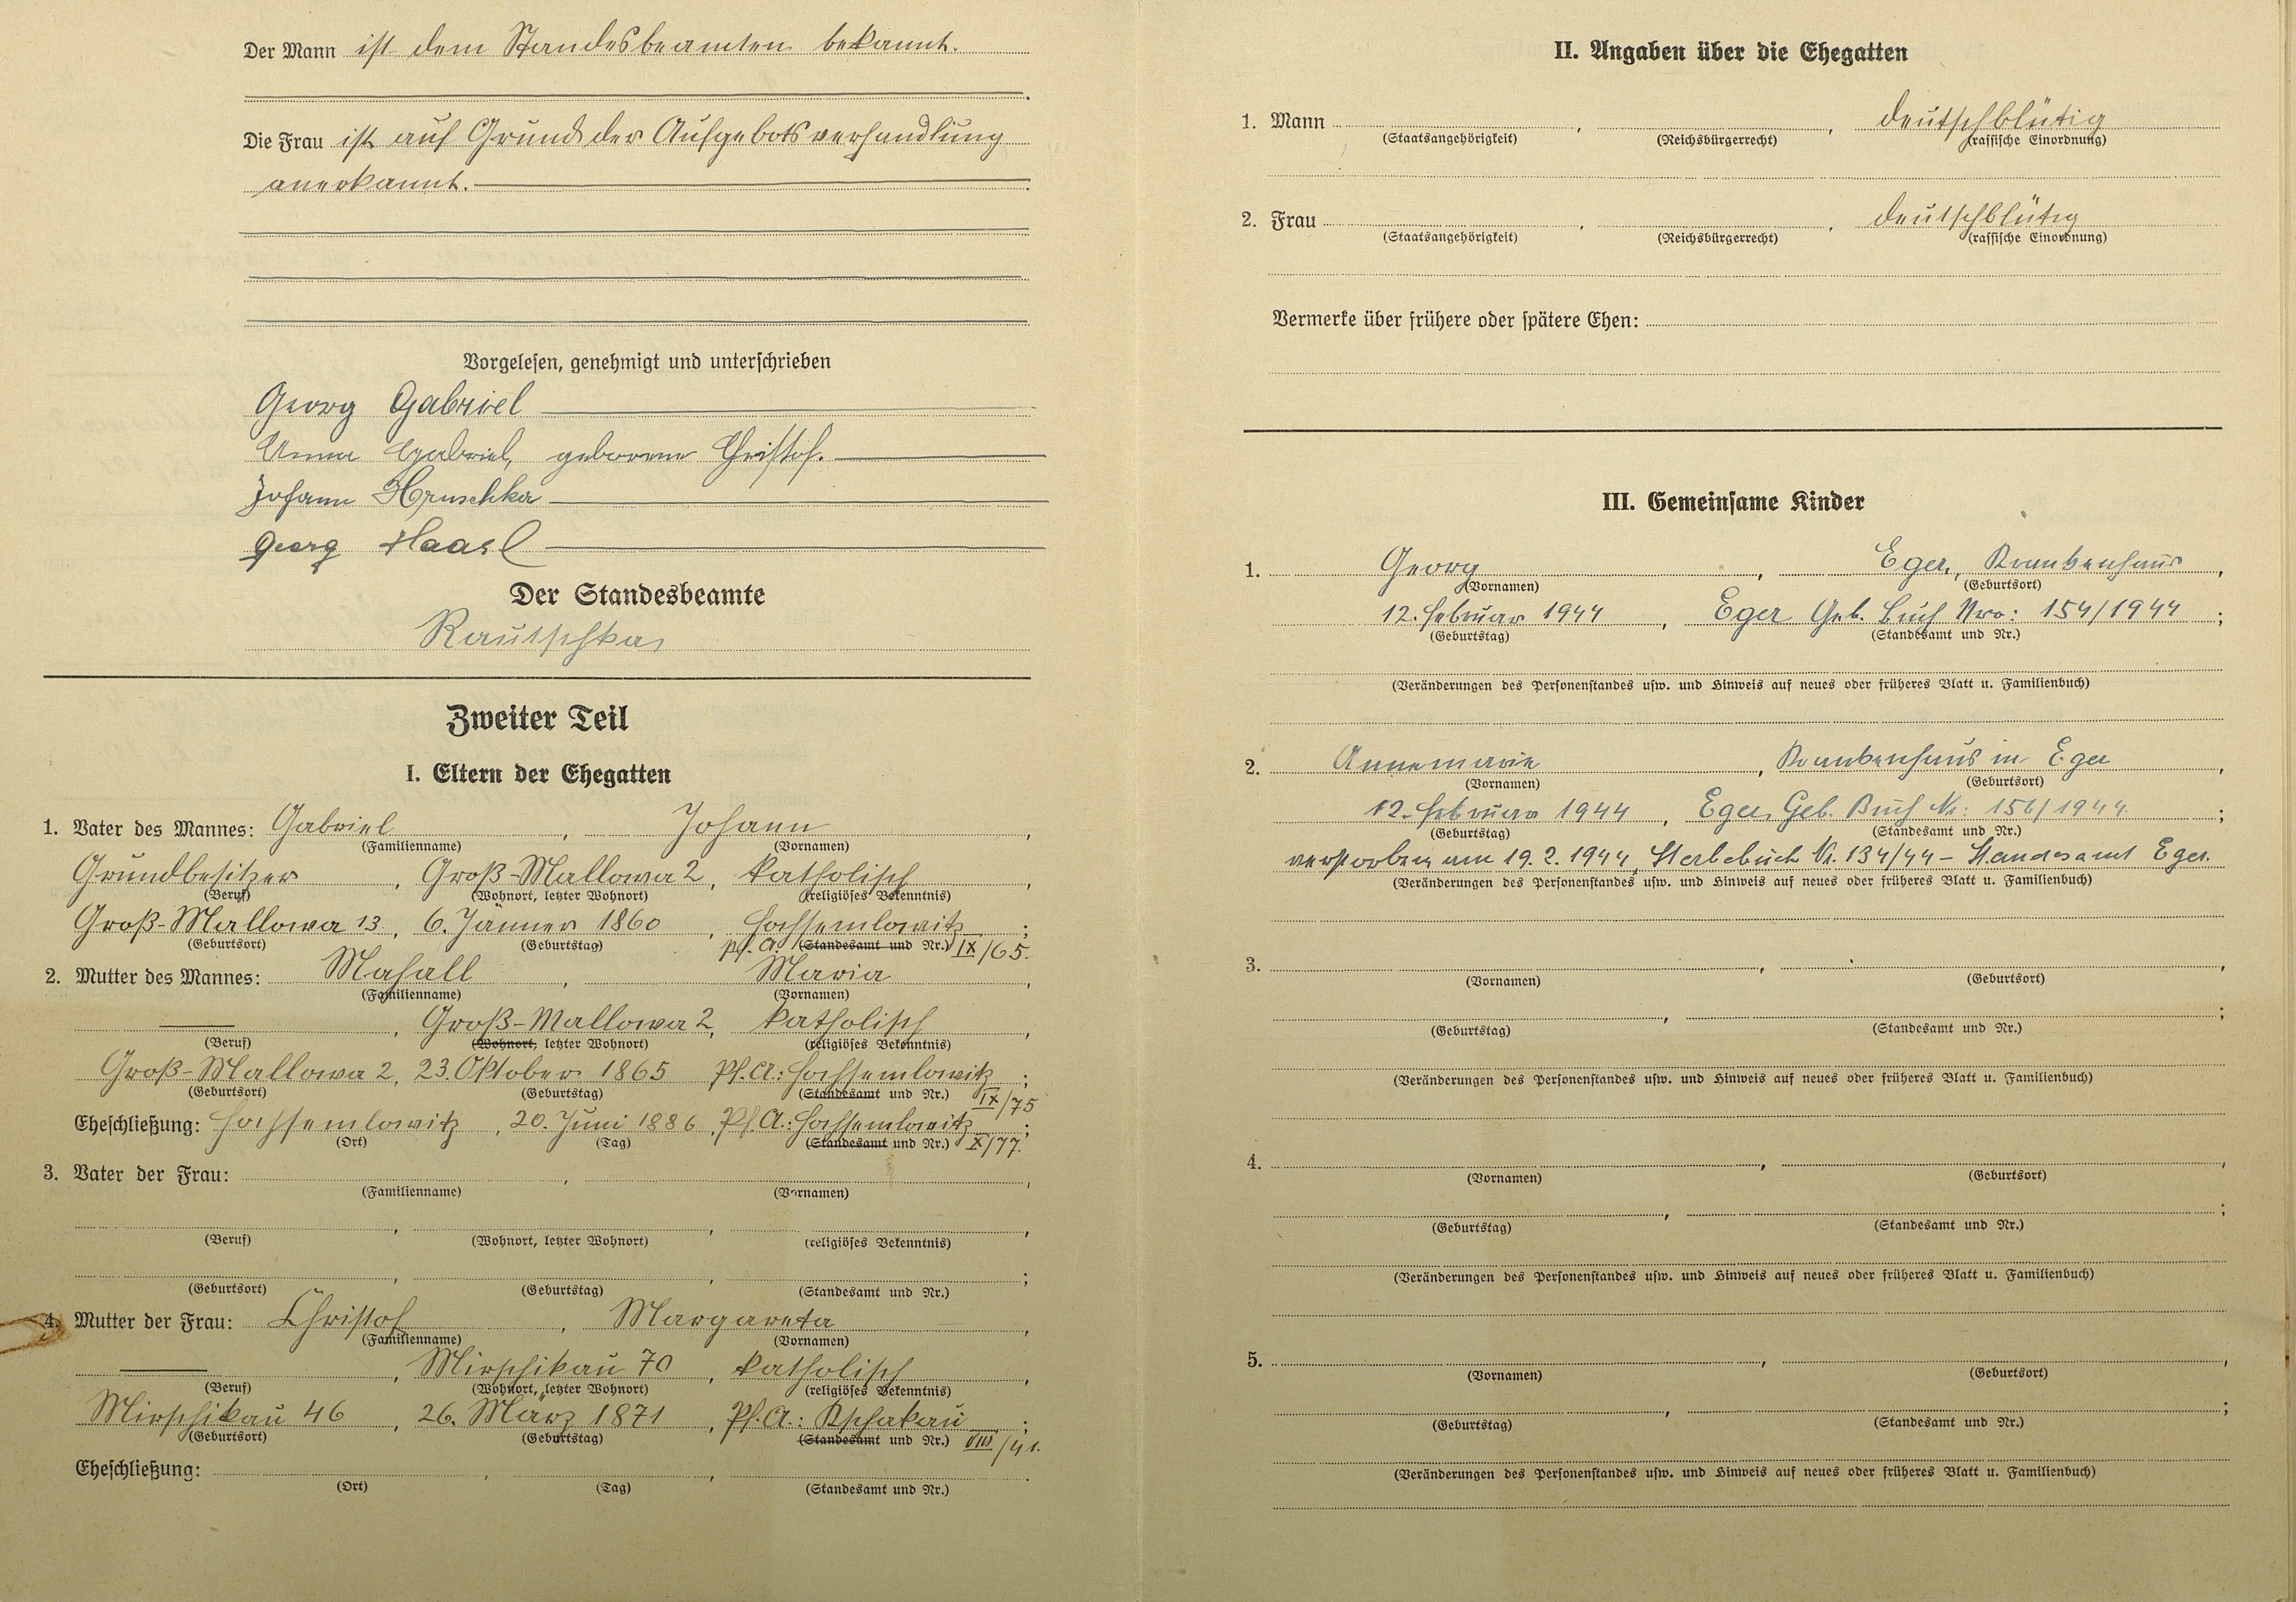 Der Mann ist dem Standesbeamten bekannt.
Die Frau ist auf Grund der Aufgebotsverhandlung
anerkannt.
Vorgelesen, genehmigt und unterschrieben
Georg Gabriel
Anna Gabriel, geborene Christof.
Johann Hruschka
Georg Haasl
Der Standesbeamte
Rautschka
Zweiter Teil
I. Eltern der Ehegatten
1. Vater des Mannes: Gabriel, Johann,
(Familienname) (Vornamen)
Grundbesitzer, Groß-Mallowa 2, katholisch,
(Beruf) (Wohnort, letzter Wohnort) (religiöses Bekenntnis)
Groß-Mallowa 13, 6. Jänner 1860, Hochsemlowitz;
(Geburtsort) (Geburtstag) Pf. A. (Standesamt und Nr.) IX/65.
2. Mutter des Mannes: Mahall, Maria,
(Familienname) (Vornamen)
—, Groß-Mallowa 2, katholisch,
(Beruf) (Wohnort, letzter Wohnort) (religiöses Bekenntnis)
Groß-Mallowa 2, 23. Oktober 1865 Pf. A.: Hochsemlowitz;
(Geburtsort) (Geburtstag) (Standesamt und Nr.) IX/75
Eheschließung: Hochsemlowitz, 20. Juni 1886, Pf. A.: Hochsemlowitz;
(Ort) (Tag) (Standesamt und Nr.) X/77.
3. Vater der Frau: , ,
(Familienname) (Vornamen)
, , ,
(Beruf) (Wohnort, letzter Wohnort) (religiöses Bekenntnis)
, , ;
(Geburtsort) (Geburtstag) (Standesamt und Nr.)
4. Mutter der Frau: Christof, Margareta,
(Familienname) (Vornamen)
—, Mirschikau 70, katholisch,
(Beruf) (Wohnort, letzter Wohnort) (religiöses Bekenntnis)
Mirschikau 46, 26. März 1871, Pf. A.: Pschakau;
(Geburtsort) (Geburtstag) (Standesamt und Nr.) VIII/41.
Eheschließung: , , .
(Ort) (Tag) (Standesamt und Nr.)
II. Angaben über die Ehegatten
1. Mann , , deutschblütig
(Staatsangehörigkeit) (Reichsbürgerrecht) (rassische Einordnung)
2. Frau , , deutschblütig
(Staatsangehörigkeit) (Reichsbürgerrecht) (rassische Einordnung)
Vermerke über frühere oder spätere Ehen:
III. Gemeinsame Kinder
1. Georg, Eger, Krankenhaus,
(Vornamen) (Geburtsort)
12. Februar 1944, Eger Geb. Buch Nro: 154/1944;
(Geburtstag) (Standesamt und Nr.)
(Veränderungen des Personenstandes usw. und Hinweis auf neues oder früheres Blatt u. Familienbuch)
2. Annemarie, Krankenhaus in Eger,
(Vornamen) (Geburtsort)
12. Februar 1944, Eger, Geb. Buch Nr: 156/1944;
(Geburtstag) (Standesamt und Nr.)
verstorben am 19.2.1944, Sterbebuch Nr. 134/44 – Standesamt Eger.
(Veränderungen des Personenstandes usw. und Hinweis auf neues oder früheres Blatt u. Familienbuch)
3. , ,
(Vornamen) (Geburtsort)
, ;
(Geburtstag) (Standesamt und Nr.)
(Veränderungen des Personenstandes usw. und Hinweis auf neues oder früheres Blatt u. Familienbuch)
4. , ,
(Vornamen) (Geburtsort)
, ;
(Geburtstag) (Standesamt und Nr.)
(Veränderungen des Personenstandes usw. und Hinweis auf neues oder früheres Blatt u. Familienbuch)
5. , ,
(Vornamen) (Geburtsort)
, ;
(Geburtstag) (Standesamt und Nr.)
(Veränderungen des Personenstandes usw. und Hinweis auf neues oder früheres Blatt u. Familienbuch)